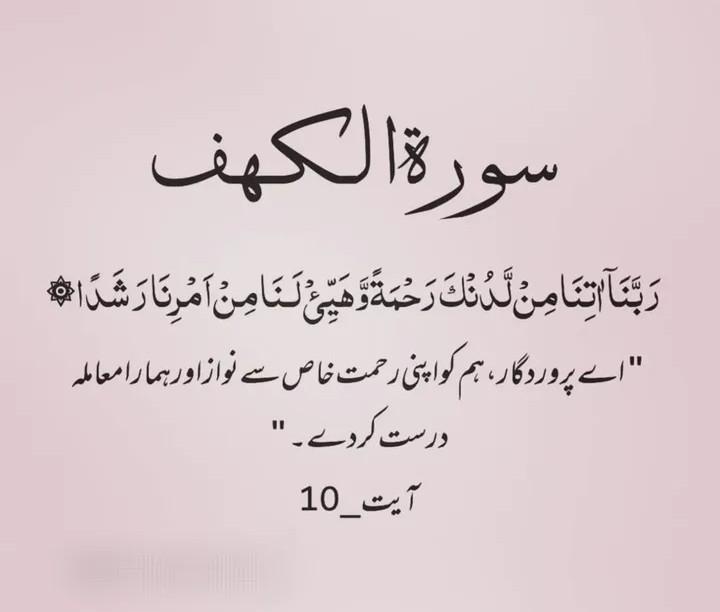 سورة الكهف
رَبَّنَآ اٰتِنَا مِنْ لَّدُنْكَ رَحْمَةً وَّهَيِّئْ لَنَا مِنْ اَمْرِنَا رَشَدًا ۞
"اے پروردگار، ہم کو اپنی رحمت خاص سے نواز اور ہمارا معاملہ
درست کردے۔"
آیت_10